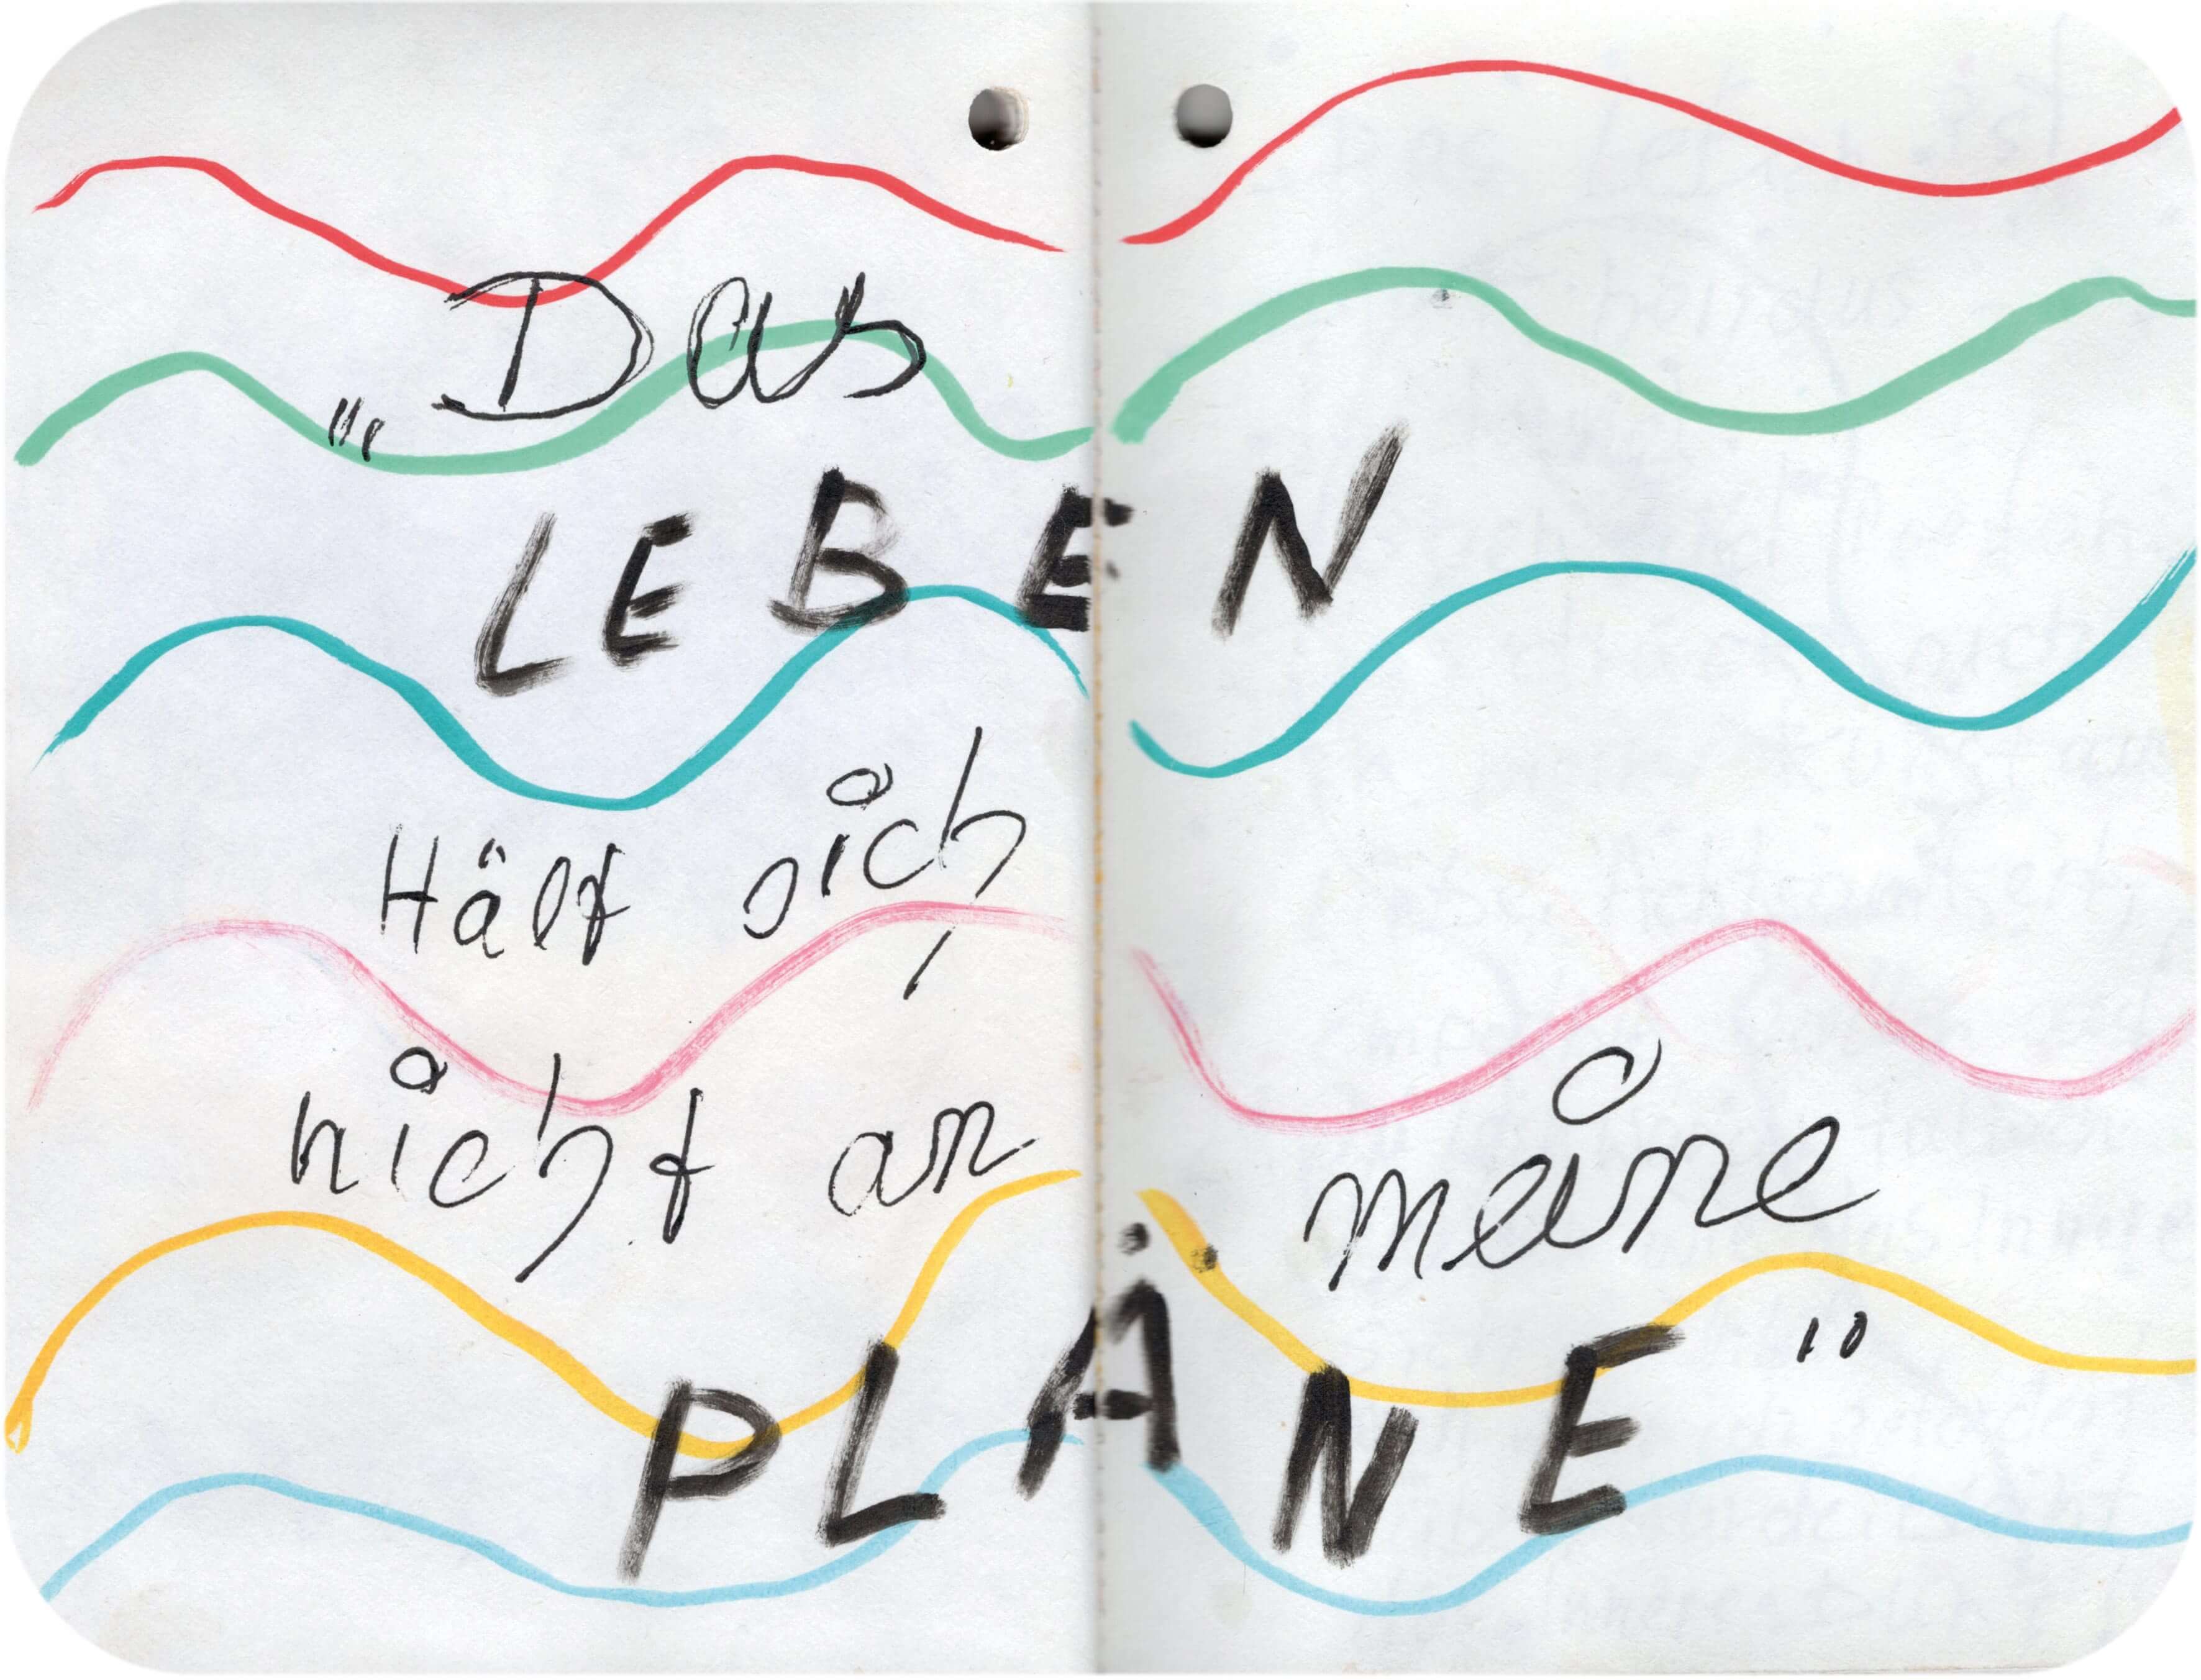 „Das
LEBEN
Hält sich
nicht an meine
PLÄNE"